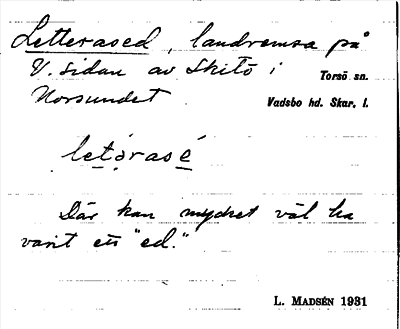 Letterased, landremsa på
V. sidan av Skitö i Torsö sn.
Norsundet. Vadsbo hd. Skar. l.
letərasé
Där kan mycket väl ha
varit ett "ed."
L. MADSÉN 1931